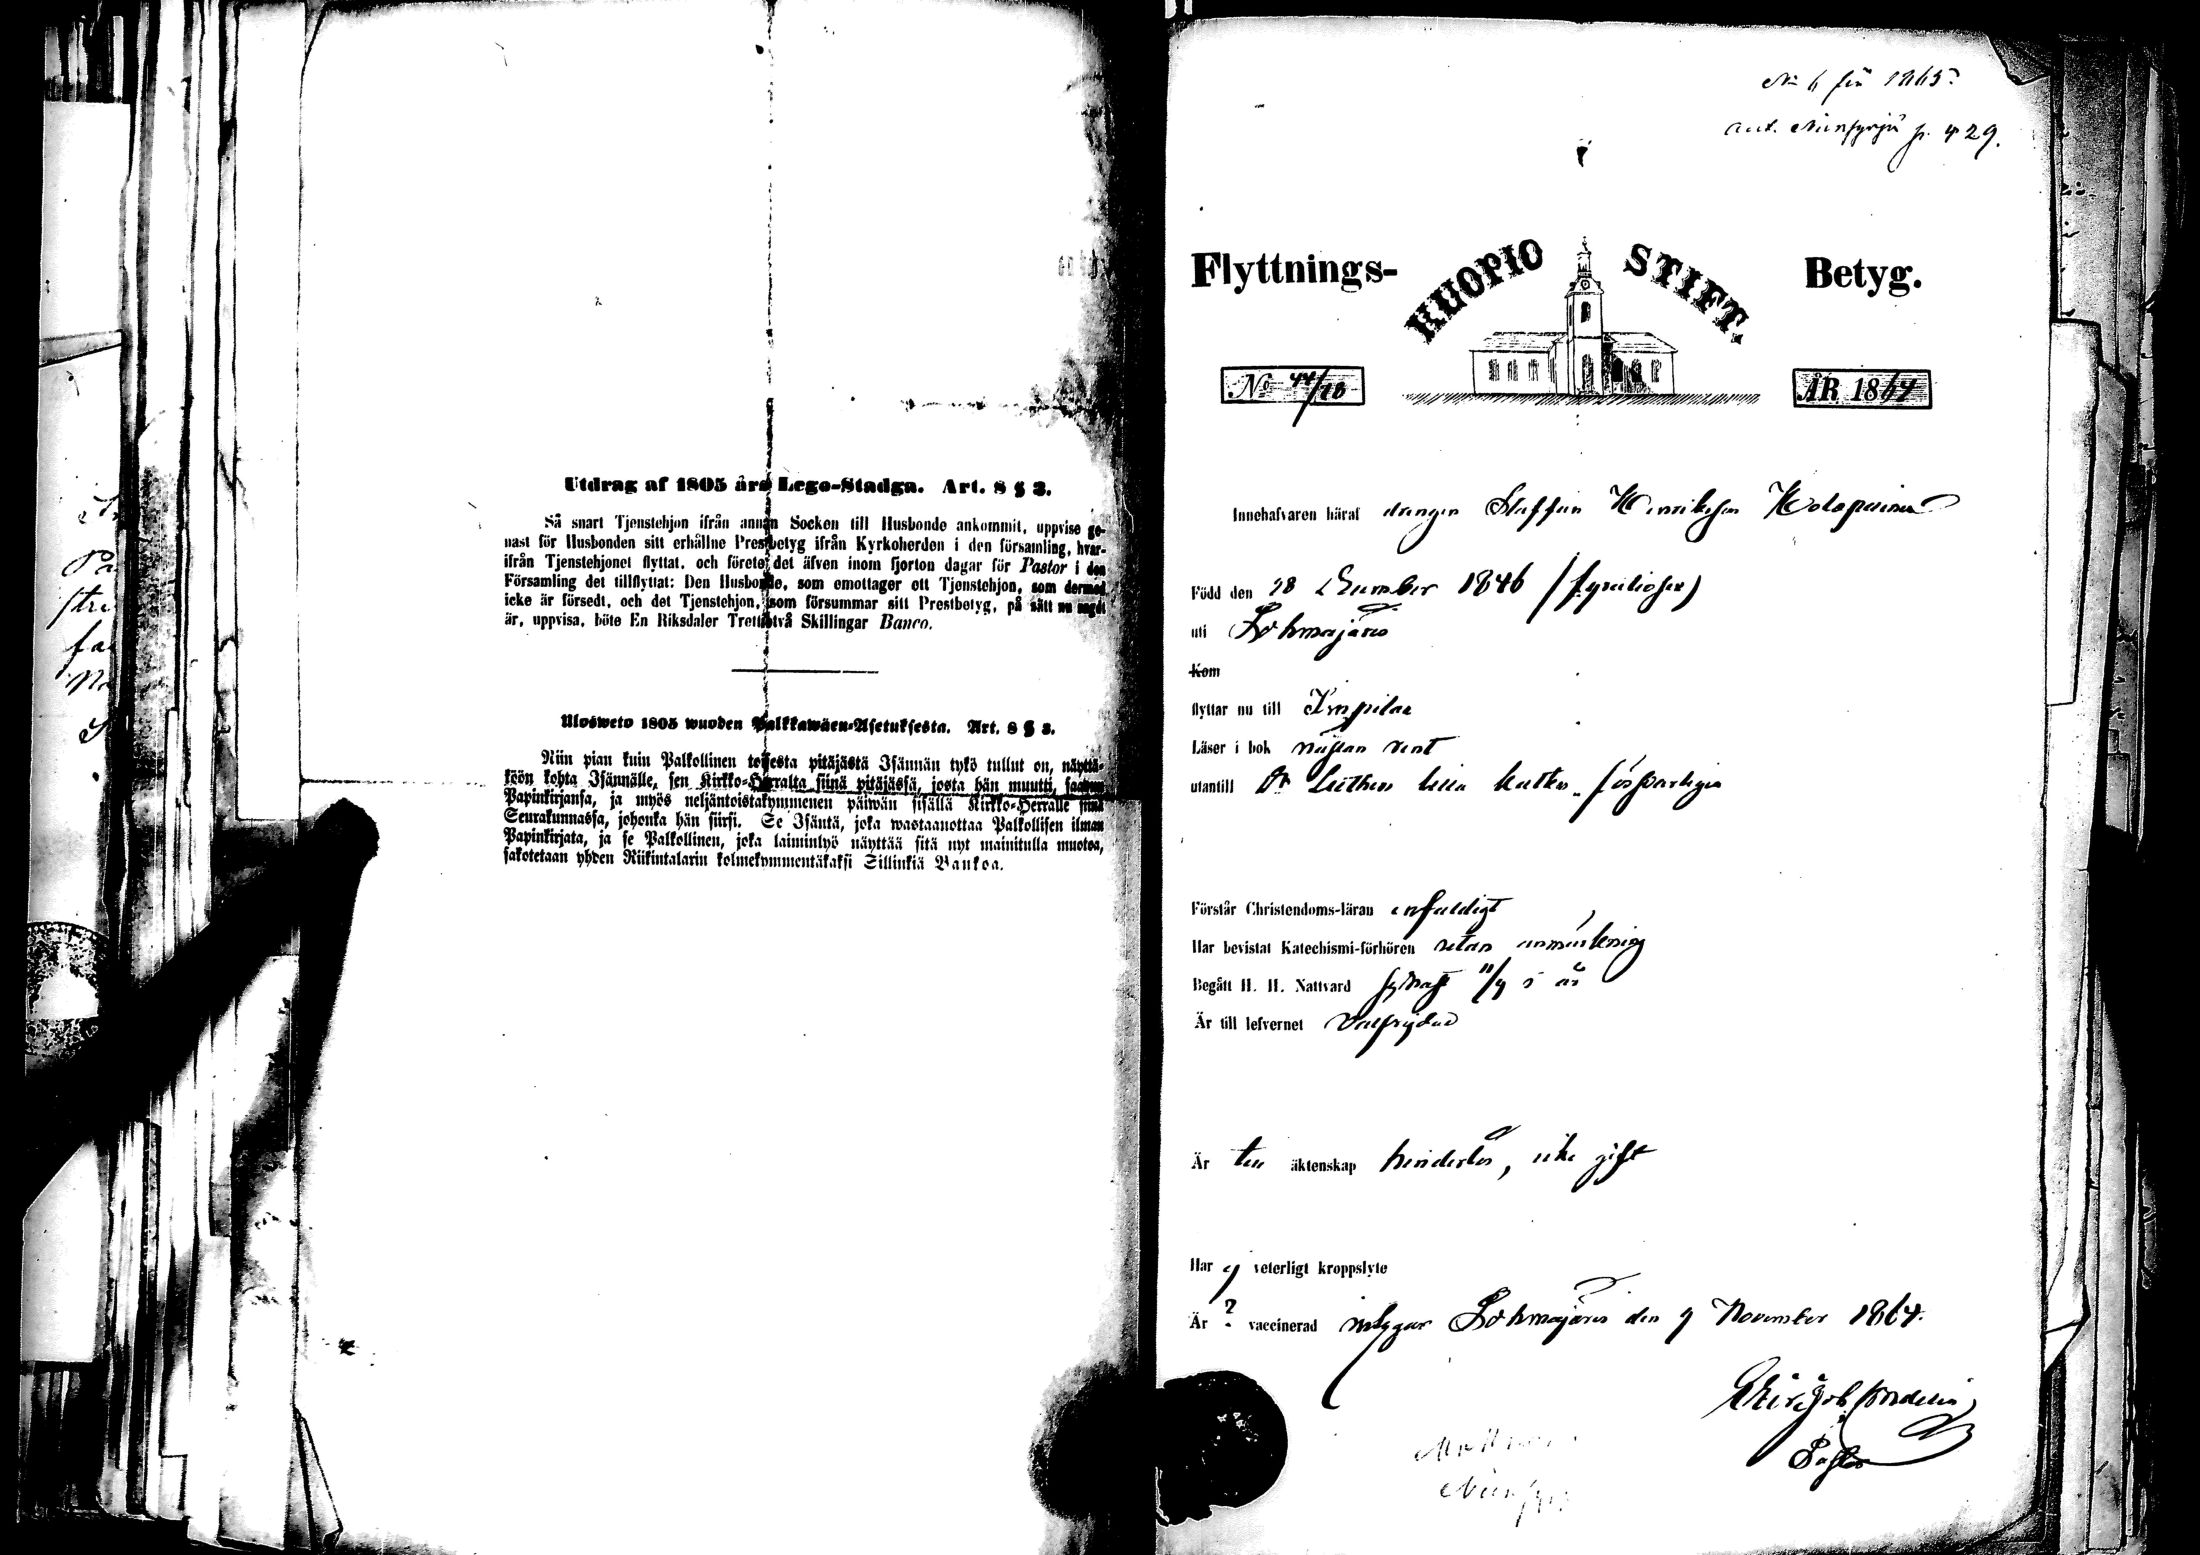 Utdrag af 1805 års Lego-Stadga. Art. 8 § 3.
Så snart Tjenstehjon ifrån annan Socken till Husbonde ankommit, uppvise ge-
nast för Husbonden sitt erhållne Prestbetyg ifrån Kyrkoherden i den församling, hvar-
ifrån Tjenstehjonet flyttat, och förete det äfven inom fjorton dagar för Pastor i den
Församling det tillflyttat: Den Husbonde, som emottager ett Tjenstehjon, som dermed
icke är försedt, och det Tjenstehjon, som försummar sitt Prestbetyg, på sätt nu sagdt
är, uppvisa, böte En Riksdaler Trettiotvå Skillingar Banco.
Ulosweto 1805 wuoden Palkkawäen-Asetuksesta. Art. 8 § 3.
Niin pian kuin Palkollinen toisesta pitäjästä Isännän tykö tullut on, näyttä-
köön kohta Isännälle, sen Kirkko-Herralta siinä pitäjässä, josta hän muutti, saadun
Papinkirjansa, ja myös neljäntoistakymmenen päiwän sisällä Kirkko-Herralle siinä
Seurakunnassa, johonka hän siirsi. Se Isäntä, joka wastaanottaa Palkollisen ilman
Papinkirjata, ja se Palkollinen, joka laiminlyö näyttää sitä nyt mainitulla muotoa,
sakotetaan yhden Riikintalarin kolmekymmentäkaksi Sillinkiä Bankoa.
No 6 för 1865.
p. 429.
Flyttnings- KUOPIO STIFT. Betyg.
No 44/18 ÅR 1864
Innehafvaren häraf drengen Staffan Henriksson
Född den 28 December 1846
uti Tohmajärvi
Kom
flyttar nu till Impilax
Läser i bok nästan rent
utantill Dr Luthers lilla
Förstår Christendoms-läran enfaldigt
Har bevistat Katechismi-förhören utan anmärkning
Begått H. H. Nattvard sednast 11/9 i år
Är till lefvernet välfrejdad
Är till äktenskap hinderlös, icke gift
Har ej veterligt kroppslyte
Är ? vaccinerad intygar Tohmajärvi den 9 November 1864.
Pastor